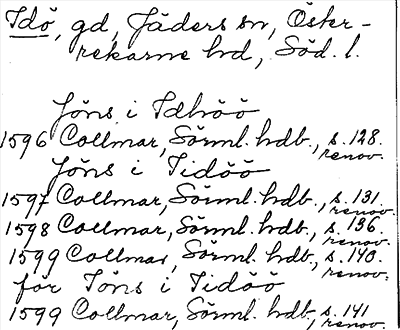 Idö, gd, Jäders sn, Öster-
rekarne hd, Söd. l.
Jöns i Idhöö
1596 Collmar, Sörml. hdb., s. 128.
renov.
Jöns i Tidöö
1597 Collmar, Sörml. hdb., s. 131.
renov.
1598 Collmar, Sörml. hdb., s. 136.
renov.
1599 Collmar, Sörml. hdb., s. 140.
renov.
för Jöns i Tidöö
1599 Collmar, Sörml. hdb., s. 141
renov.